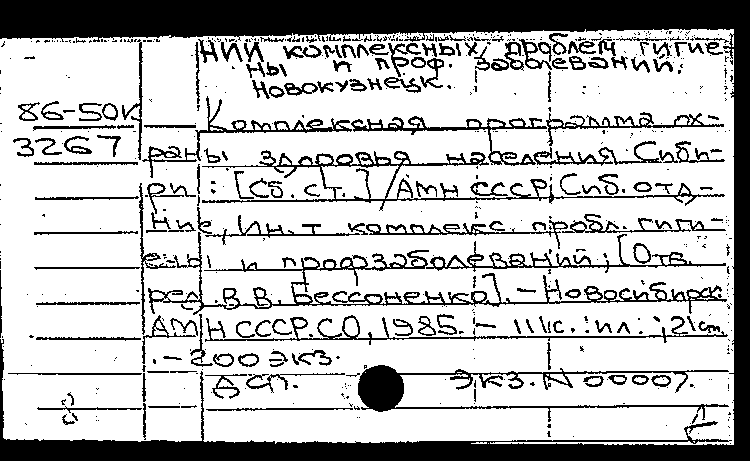 НИИ комплексных проблем гигие-
ны и проф. заболеваний.
Новокузнецк.
86-50К
3267
Комплексная программа ох-
раны здоровья населения Сиби-
ри: [Сб. ст.] / АМН СССР, Сиб. отд-
ние, Ин-т комплекс. пробл. гиги-
ены и профзаболеваний; [Отв.
ред. В.В. Бессоненко]. - Новосибирск
АМН СССР. СО, 1985. - 111с.: ил.; 21см.
. - 200 экз.
ДСП. Экз. N 00007.